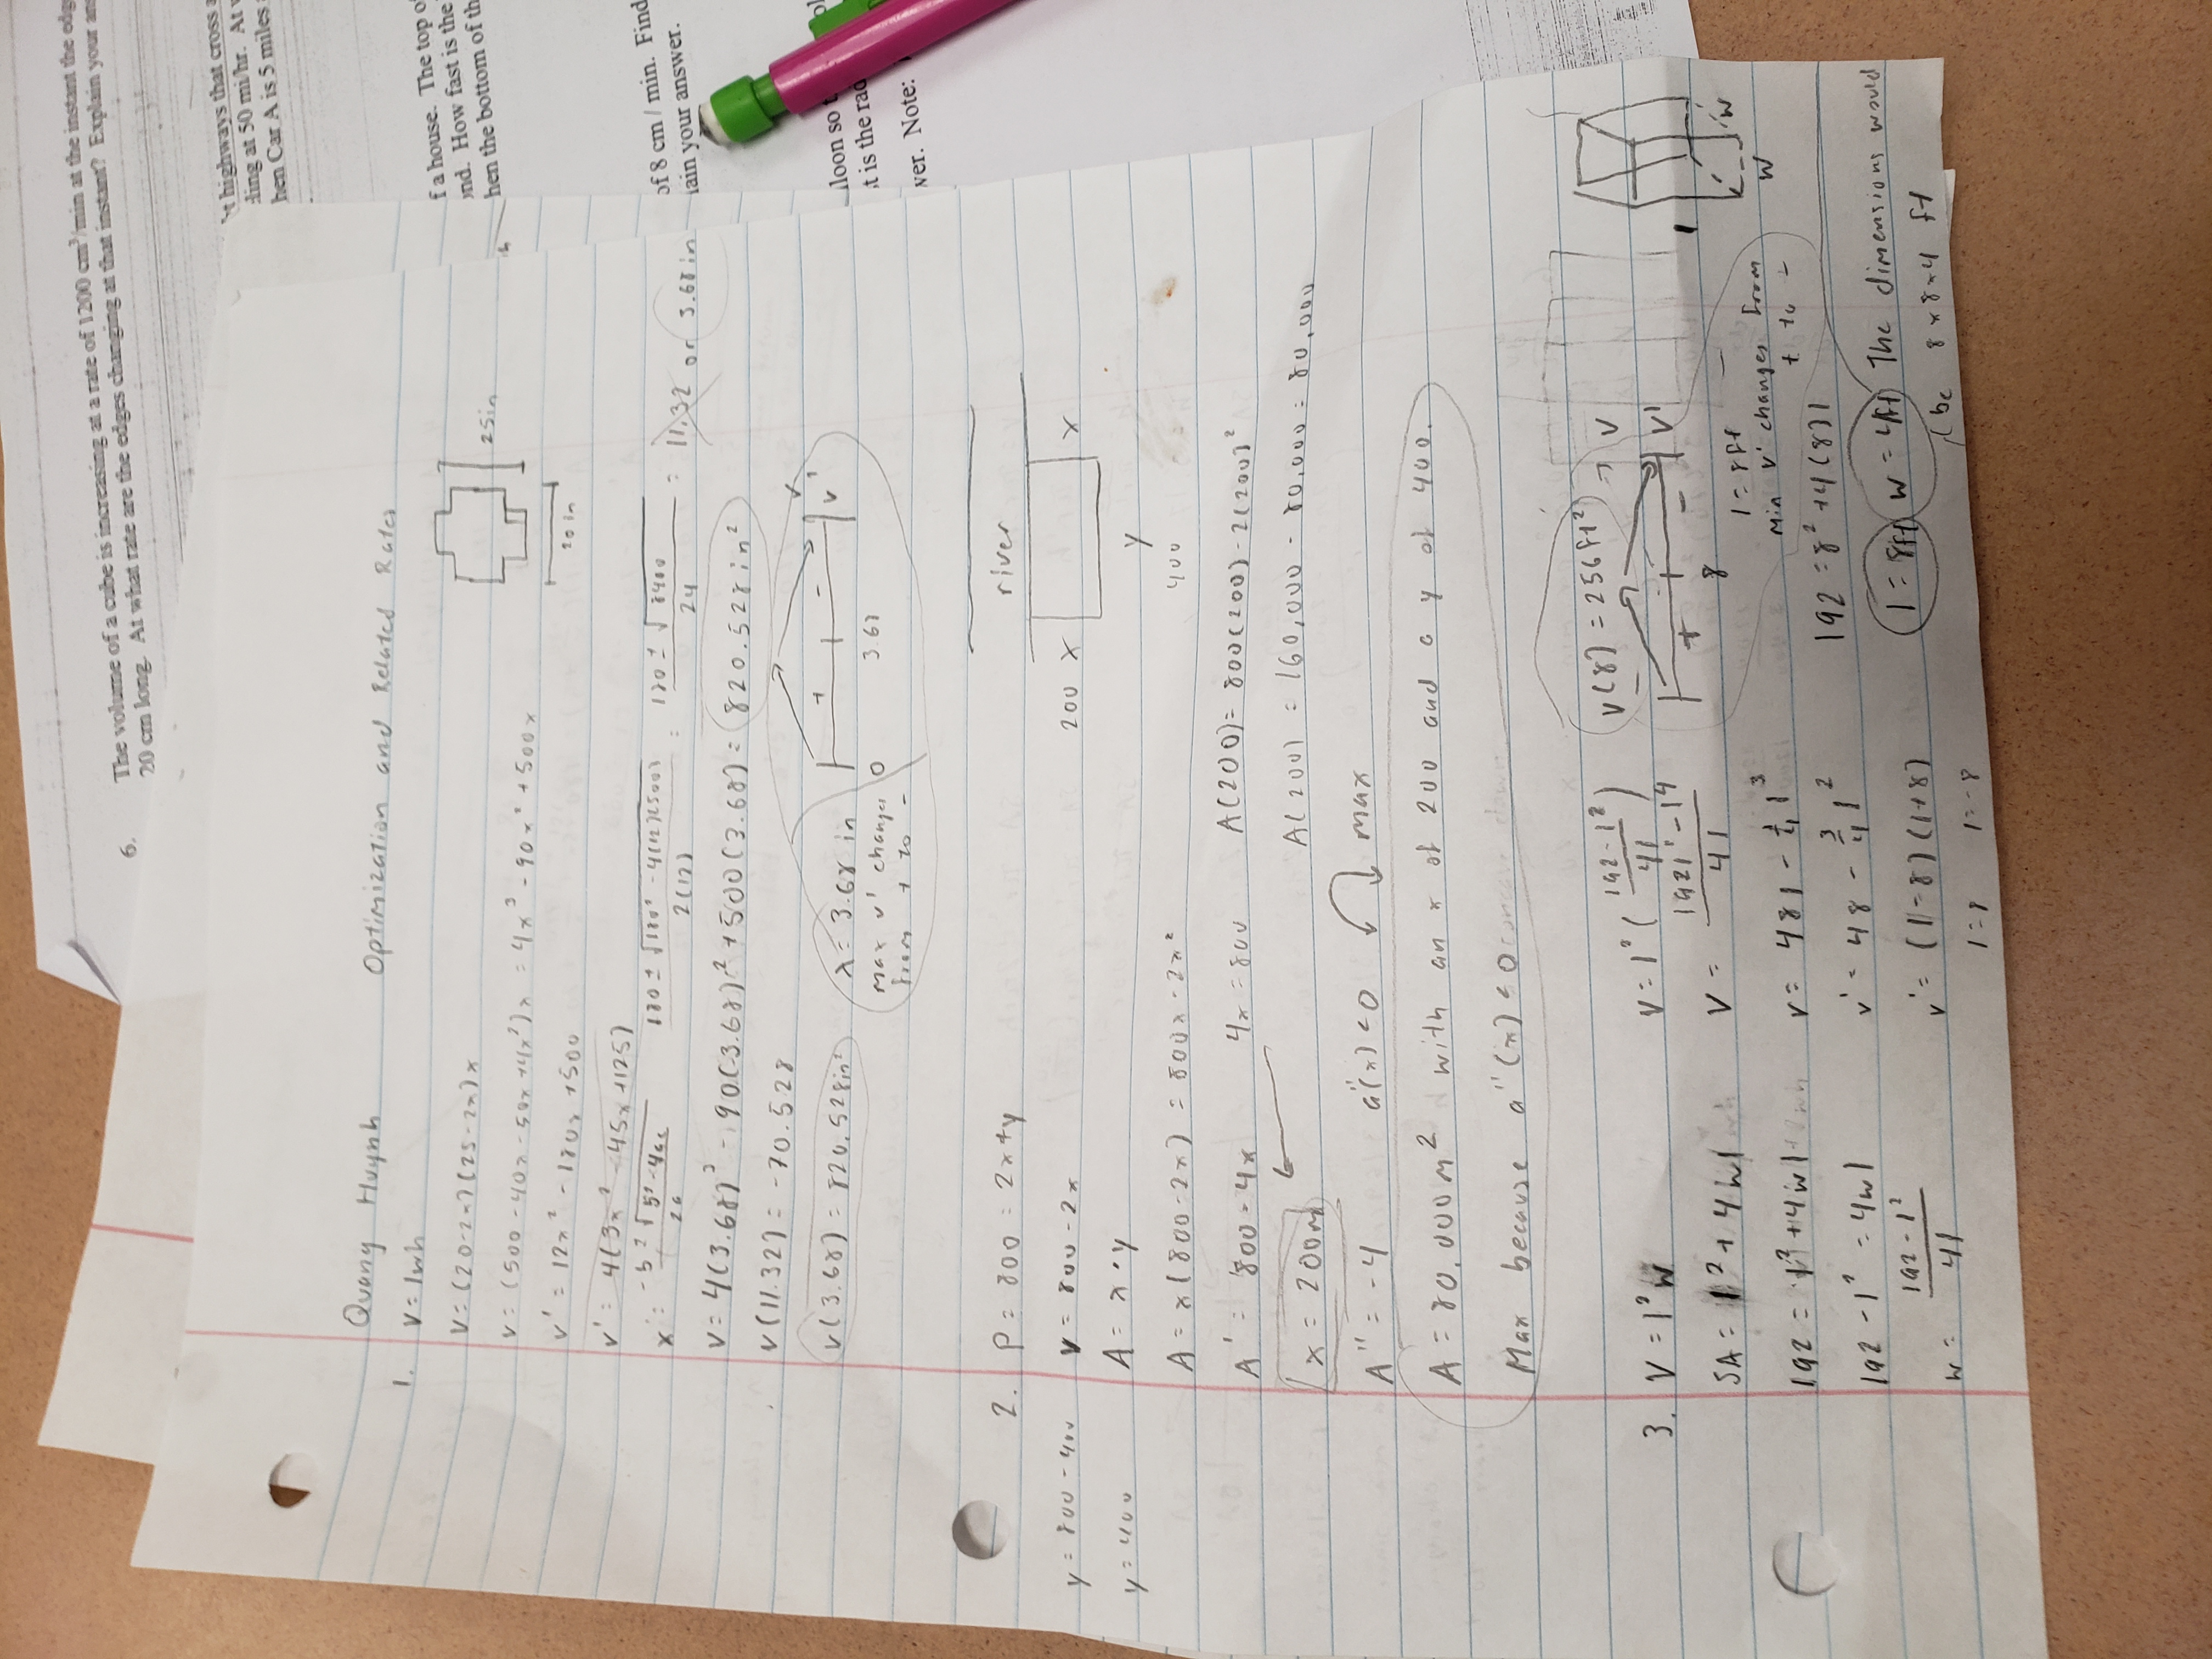 6. The volume of a cube is increasing at a rate of 1200 cm³/min at the instant the edg
20 cm long. At what rate are the edges changing at that instant? Explain your an
ht highways that cross a
ding at 50 mi/hr. At
hen Car A is 5 miles
f a house. The top of
ond. How fast is the
hen the bottom of th
of 8 cm / min. Find
lain your answer.
lloon so t
st is the rad
wer. Note:
Quang Huynh Optimization and Related Rates
1. V = lwh
V = (20-2x)(25-2x)x
25in
V = (500 - 40x - 50x + 4x²)x = 4x³ - 90x² + 500x
20 in
V' = 12x² - 180x + 500
V' = 4(3x² - 45x + 125)
x = -b ± √b² - 4ac / 2a 180 ± √180² - 4(12)(500) / 2(12) = 180 ± √8400 / 24 = 11.32 or 3.68 in
V = 4(3.68)³ - 90(3.68)² + 500(3.68) = 820.528 in²
V(11.32) = -70.528
V(3.68) = 820.528in² x = 3.68 in + - V V'
max v' changes from + to - 0 3.68
2. P = 800 = 2x+y river
y = 800 - 400 y = 800 - 2x 200 x x
y = 400 A = x · y y
A = x(800-2x) = 800x - 2x² 400
A' = 800 - 4x 4x = 800 A(200) = 800(200) - 2(200)²
x = 200m A(200) = 160,000 - 80,000 = 80,000
A'' = -4 a''(x) < 0 max
A = 80,000m² with an x of 200 and a y of 400.
Max because a''(x) < 0 concave down
3. V = l²w V = l²(192-l²/4l) V(8) = 256ft² → V
SA = l² + 4wl V = 192l² - l⁴/4l + - V'
8
192 = l² + 4wl V = 48l - 1/4 l³ l = 8ft
min V' changes from + to -
192 - l² = 4wl V' = 48 - 3/4 l² 192 = 8² + 4(8)l
w = 192 - l²/4l V' = (l-8)(l+8) l = 8ft w = 4ft The dimensions would
l = 8 l = -8 be 8 x 8 x 4 ft
l w
w